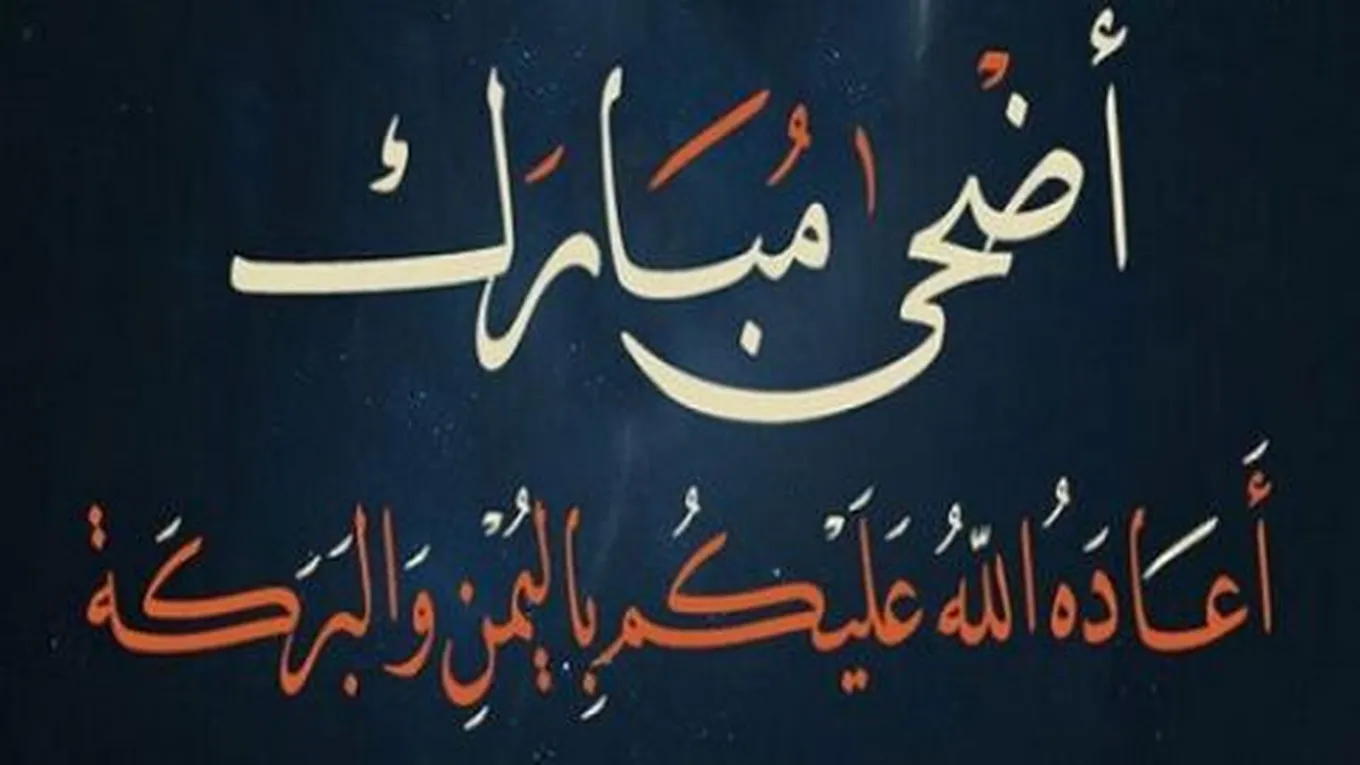 أَضْحى مُبَارَك
أَعَادَهُ اللّهُ عَلَيْكُم بِاليُمْنِ وَالبَرَكَة